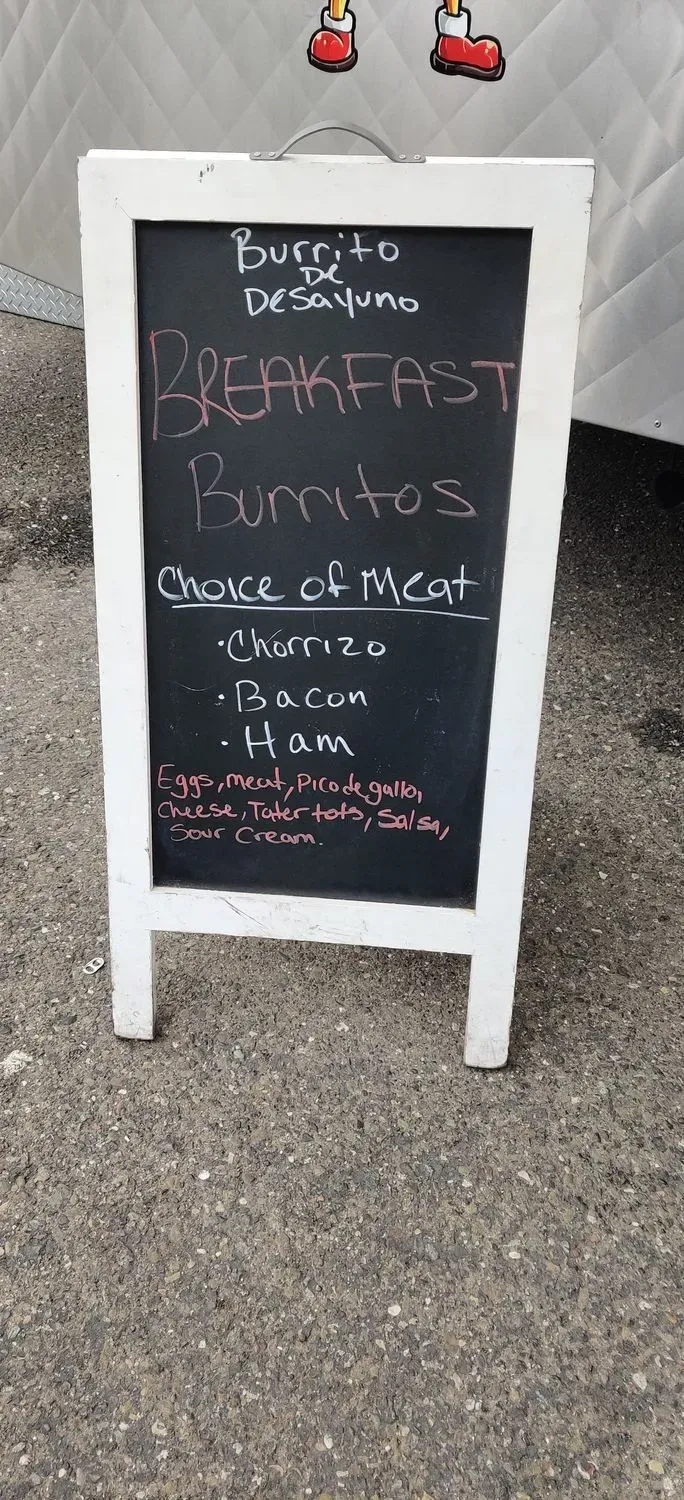 Burrito
De
Desayuno
BREAKFAST
Burritos
Choice of Meat
· Chorrizo
· Bacon
· Ham
Eggs, meat, Pico de gallo,
Cheese, Tater tots, Salsa,
Sour Cream.